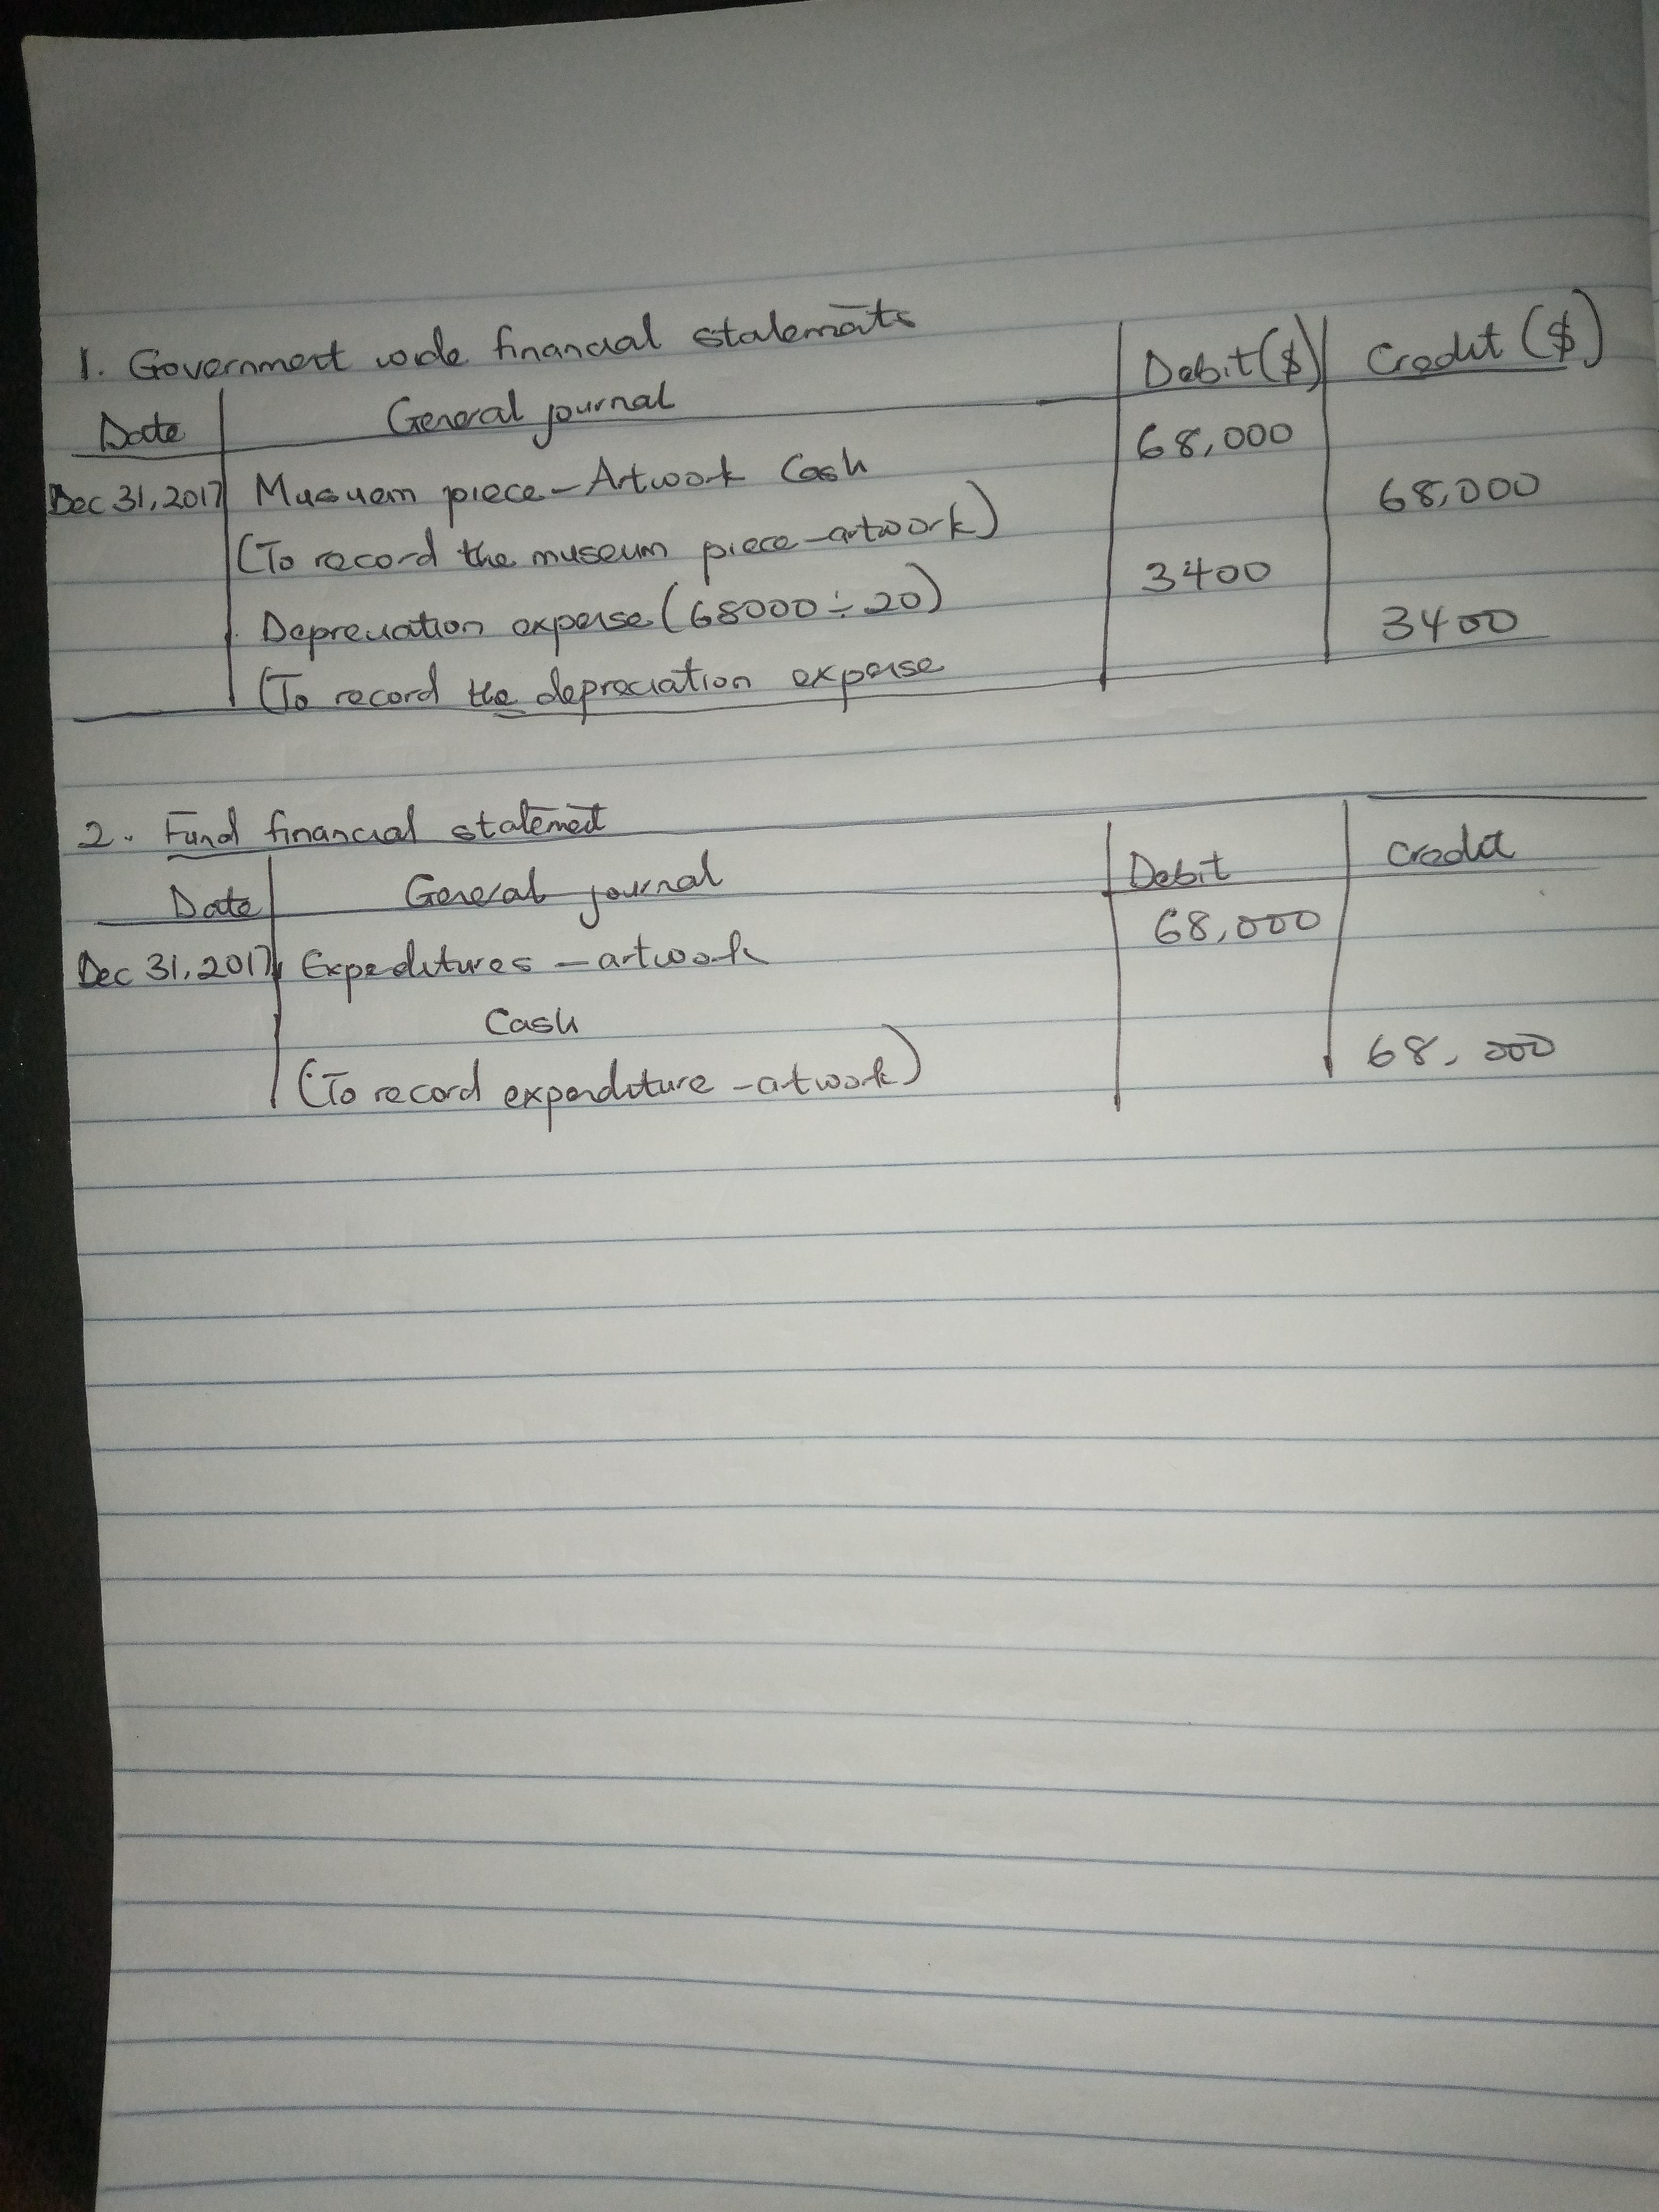 1. Government wide financial statements
Date | General journal | Debit($) | Credit ($)
Dec 31, 2017 | Musuem piece - Artwork Cash | 68,000
(To record the museum piece - artwork) | 68,000
Depreciation expense (68000 ÷ 20) | 3400
(To record the depreciation expense | 3400
2. Fund financial statement
Date | General journal | Debit | Credit
Dec 31, 2017 | Expenditures - artwork | 68,000
Cash
(To record expenditure - artwork) | 68,000